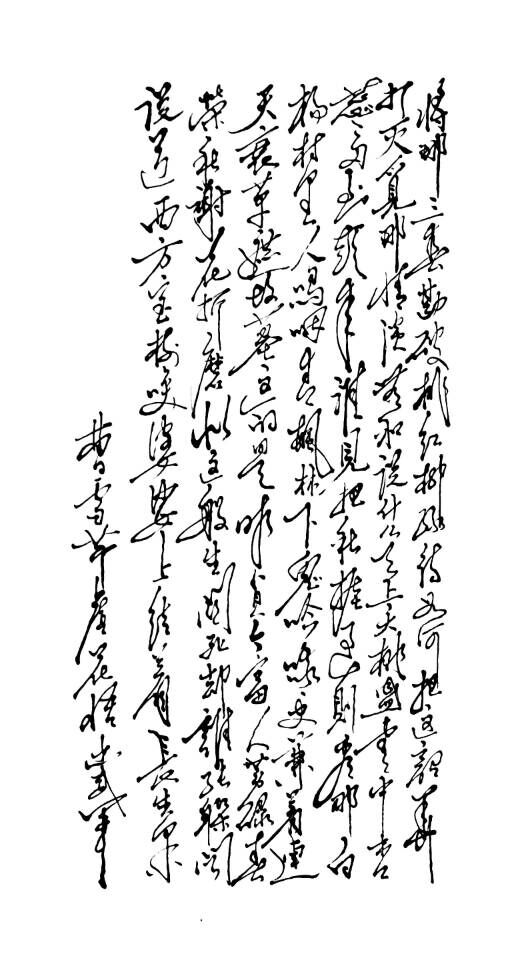 将那三春勘破桃红柳绿待如何把这韶华
打灭觅那清淡天和说什么天上夭桃盛云中杏
蕊多到头来谁见把秋捱过则看那白
杨村里人呜咽青枫林下鬼吟哦更兼着连
天衰草遮坟墓这的是昨贫今富人劳碌春
荣秋谢花折磨似这般生关死劫谁能躲闻
说道西方宝树唤婆娑上结着长生果
曹雪芹虚花悟